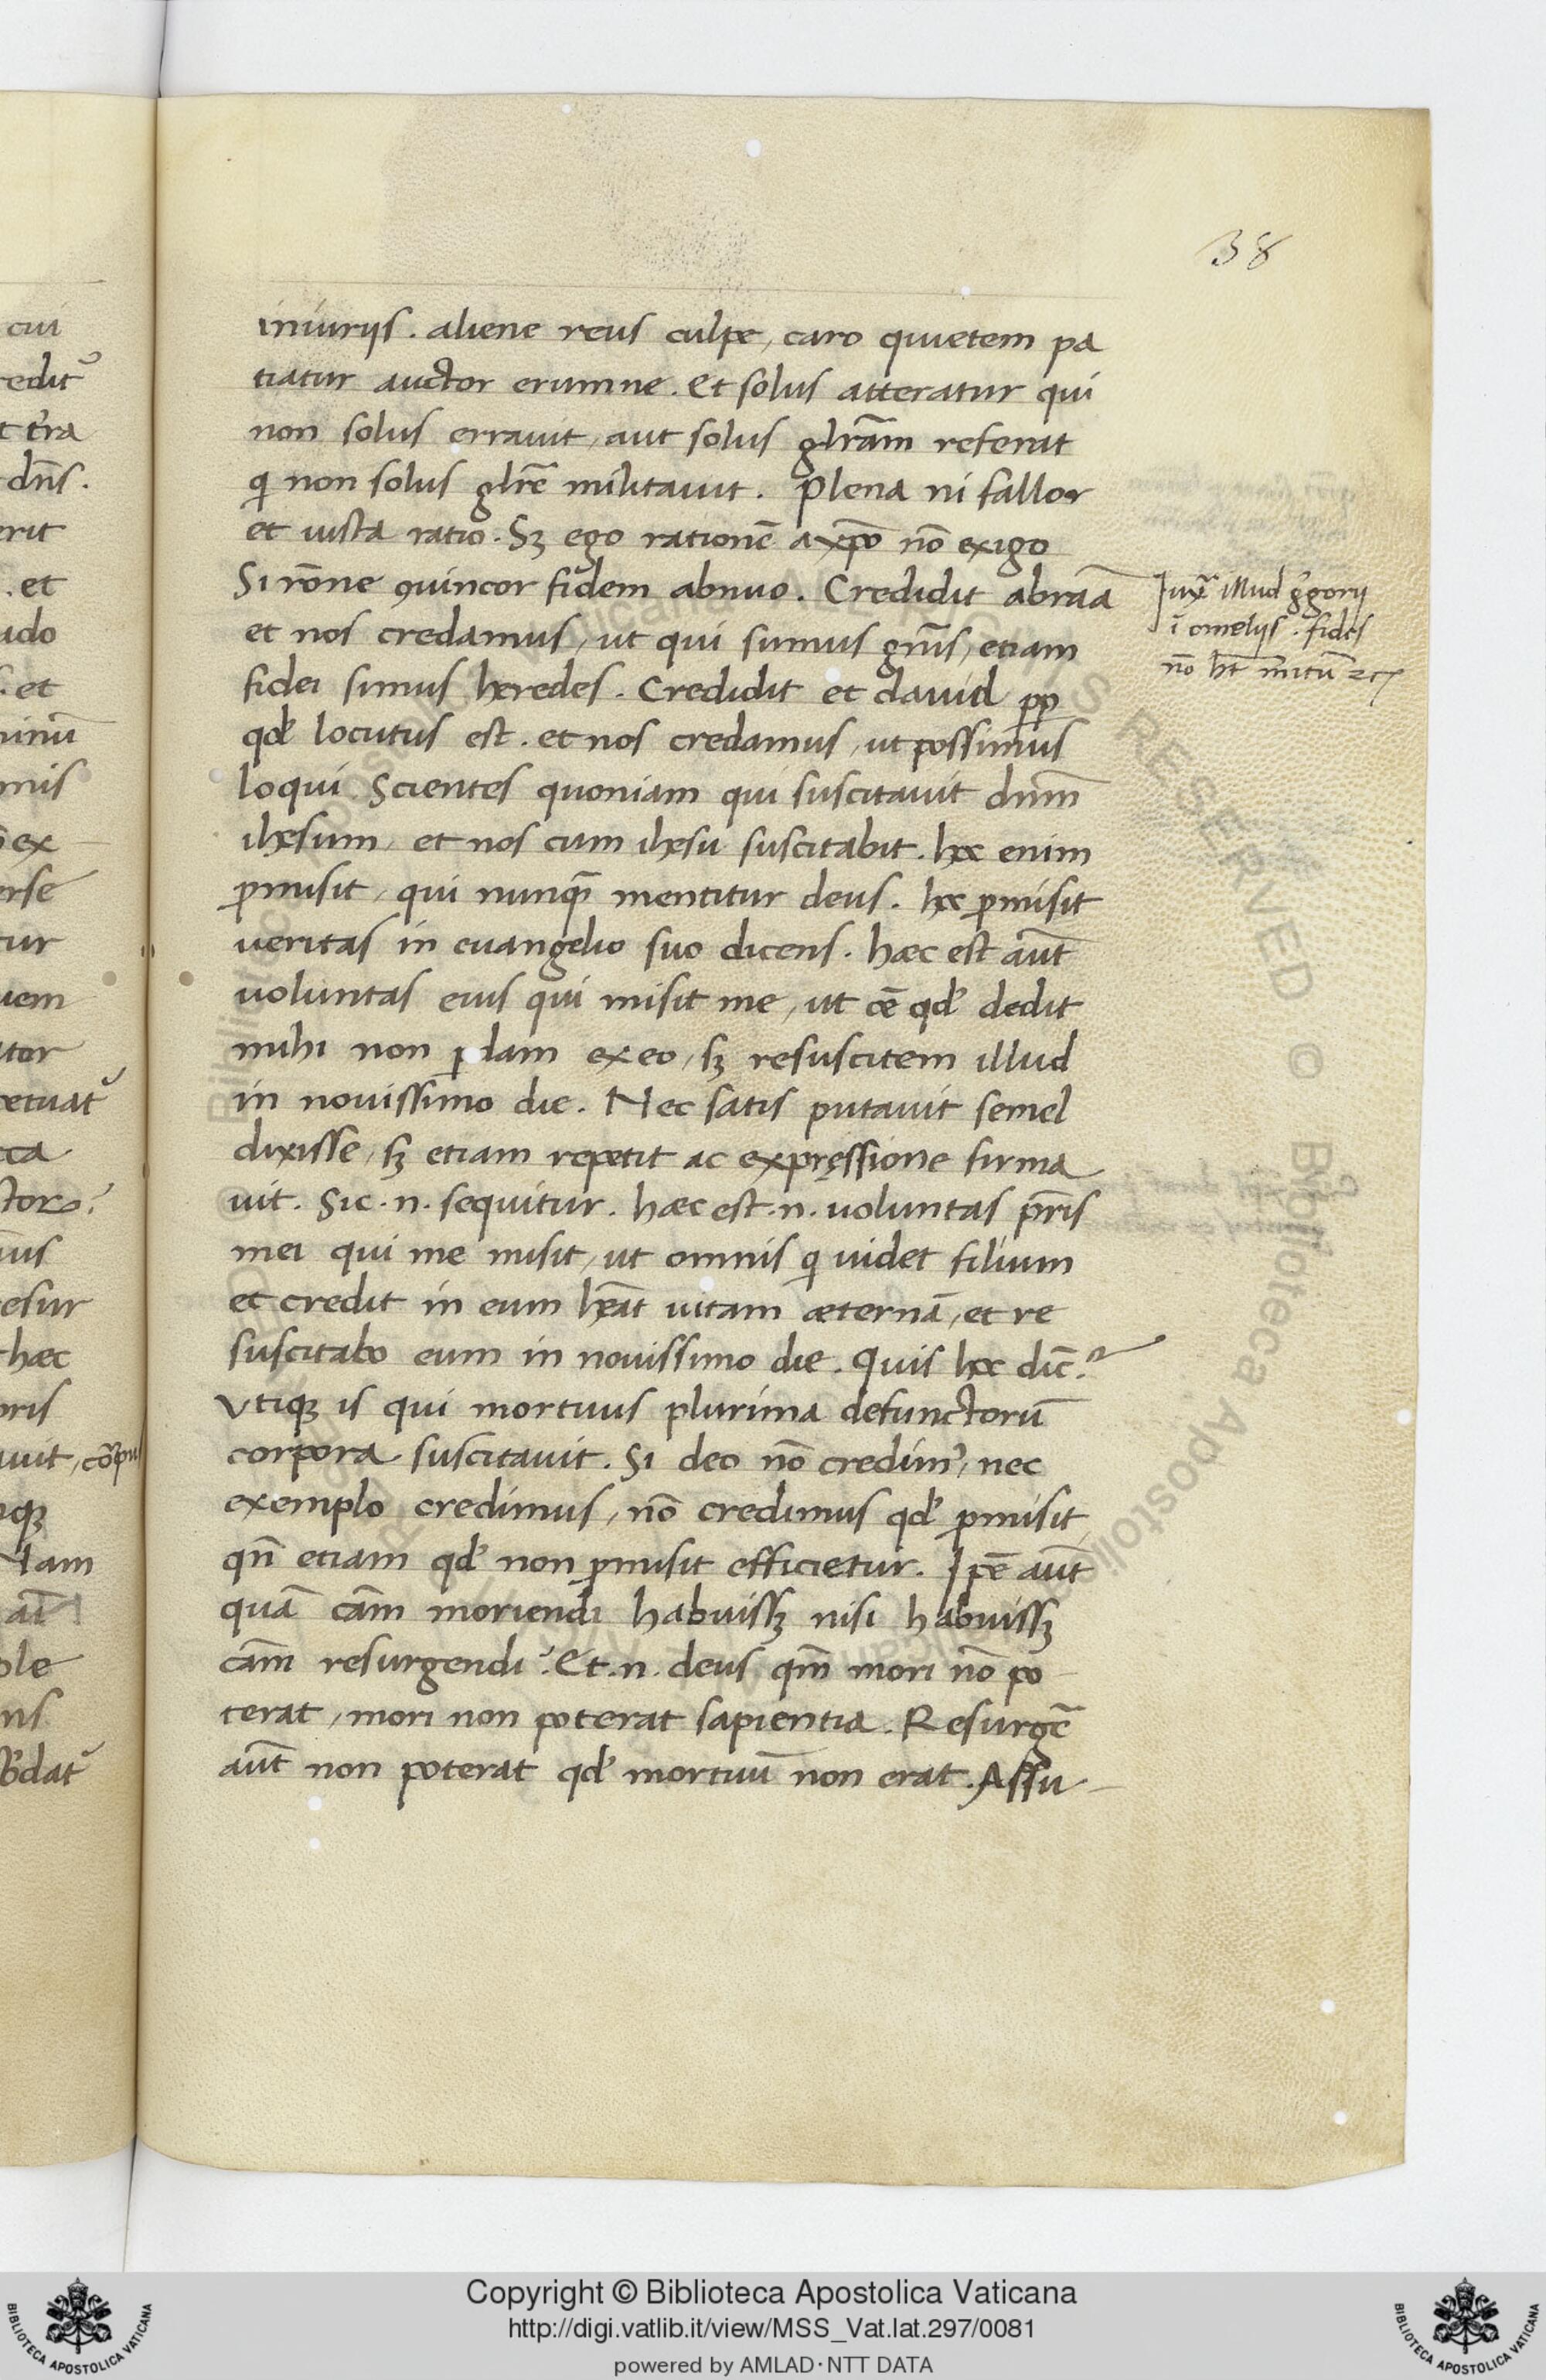 38
iniuriis. aliene reus culpe, caro quietem pa
tiatur auctor erumne. Et solus atteratur qui
non solus errauit, aut solus glr̄am referat
qi non solus glr̄e militauit. Plena ni fallor
et iusta ratio. Sꝫ ego rationē a xp̄o nō exigo
Si rōne ꝯuincor fidem abnuo. Credidit abraā
et nos credamus, ut qui sumus gn̄is, etiam
fidei simus heredes. Credidit et dauid pp
qđ locutus est. et nos credamus, ut possimus
loqui. Scientes quoniam qui suscitauit dnm̄
ihesum, et nos cum ihesu suscitabit. hoc enim
ꝓmisit, qui nunqȝ mentitur deus. hoc ꝓmisit
ueritas in euangelio suo dicens. haec est aut̄
uoluntas eius qui misit me, ut oē qđ dedit
mihi non ꝑdam ex eo, sꝫ resuscitem illud
in nouissimo die. Nec satis putauit semel
dixisse, sꝫ etiam repetit ac expręssione firma
uit. Sic .n. sequitur. haec est .n. uoluntas pr̄is
mei qui me misit, ut omnis qi uidet filium
et credit in eum hēat uitam aeternā, et re
suscitabo eum in nouissimo die. Quis hoc dic̄?
Vtiqȝ is qui mortuus plurima defunctorū
corpora suscitauit. Si deo nō credimꝰ, nec
exemplo credimus, nō credimus qđ ꝓmisit,
qn̄ etiam qđ non ꝓmisit efficietur. Ipē aut̄
quā cām moriendi habuissꝫ nisi habuissꝫ
cām resurgendi? Et .n. deus qm̄ mori nō po
terat, mori non poterat sapientia. Resurgē
aut̄ non poterat qđ mortuū non erat. Assu
Iuxͣ illud gͦgorii
ī omeliis. fides
nō ht̄ m̄itū ⁊cͣ
cui
t ter̄a
dn̄s.
erit
. et
. et
mis
ex
erse
tur
uem
esur
haec
Copyright © Biblioteca Apostolica Vaticana
http://digi.vatlib.it/view/MSS_Vat.lat.297/0081
powered by AMLAD·NTT DATA
BIBLIOTECA APOSTOLICA VATICANA
BIBLIOTECA APOSTOLICA VATICANA